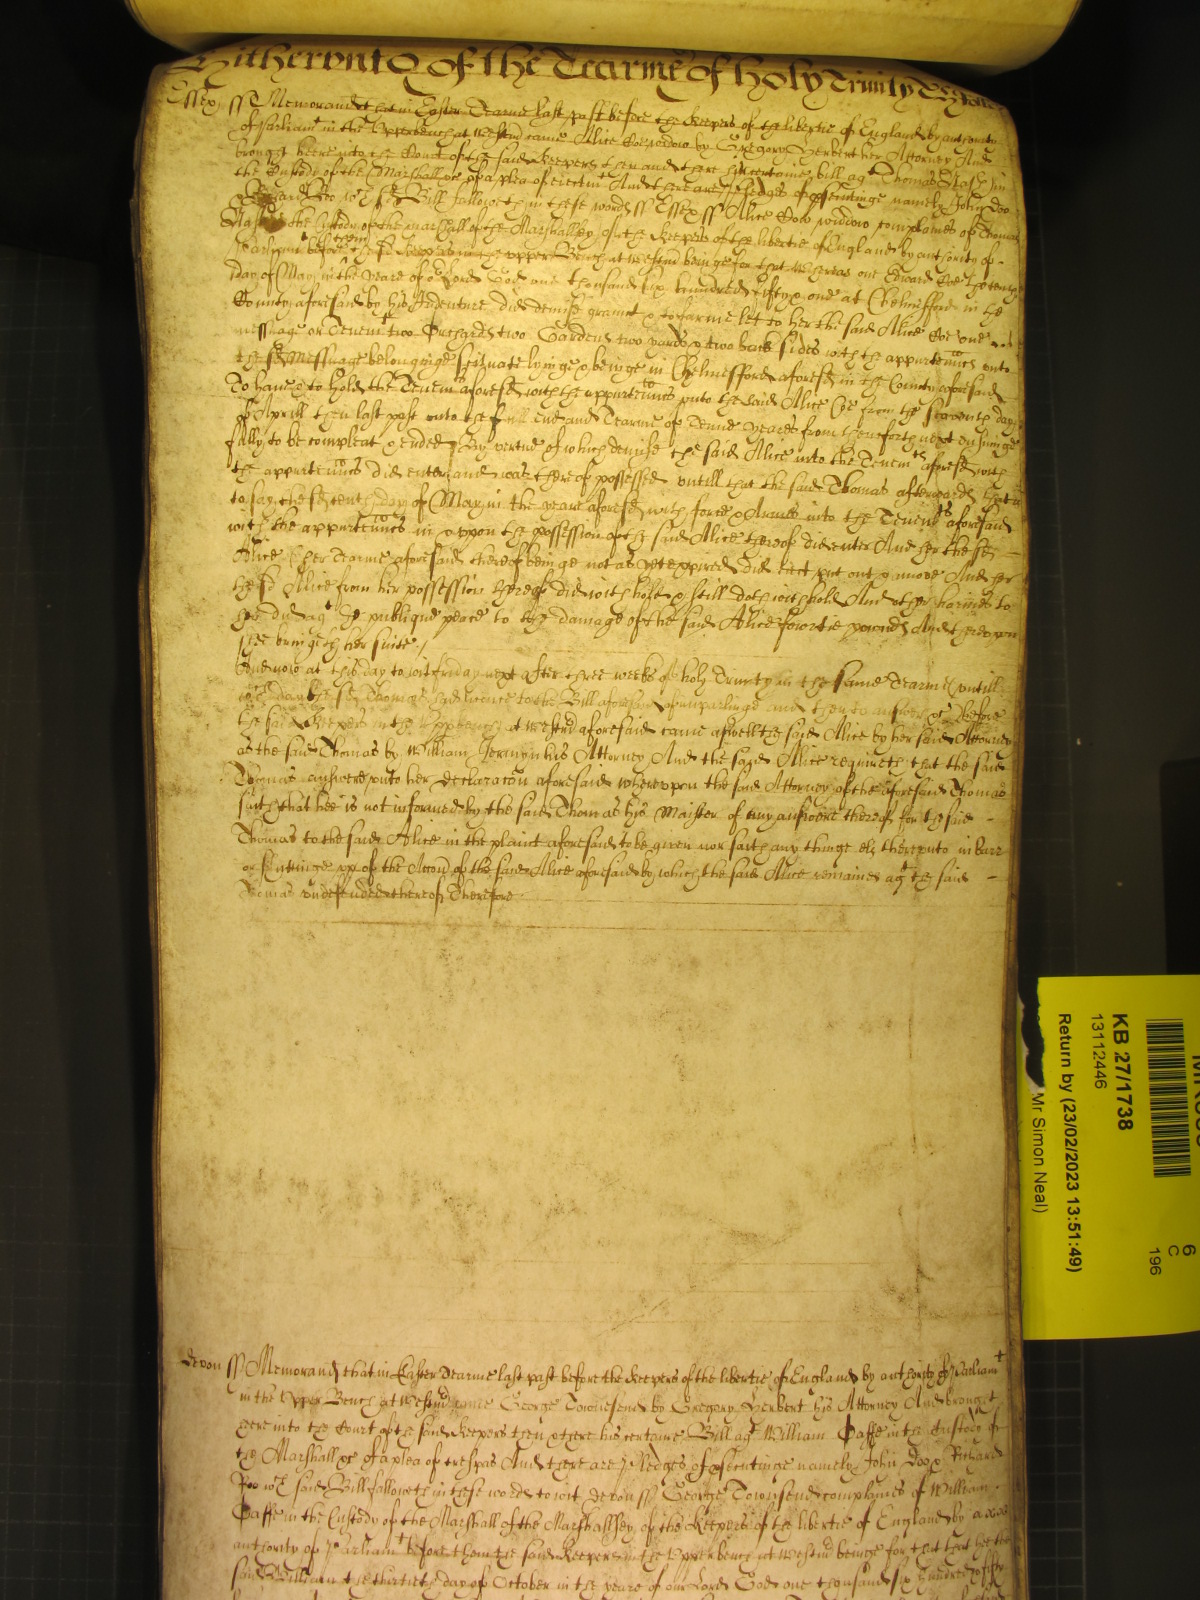 Hitherunto Of the Tearme of holy Trinity
Essex ss Memorand that in Easter Tearme last past before the Keepers of the libertie of England by authority
of Parliamt in the Upperbench at Westmr came Alice Coe widow by Gregory Herbert her Attorney And
brought heere into the Court of the said Keepers then and there her certaine bill agt Thomas
the Custody of the Marshall &c of a plea of eiectmt And there are pledges of psecutinge namely John Doo
Roo wch sd Bill followeth in these words ss Essex ss Alice Coe widdow complaines of Thomas
in the Custody of the marshall of the Marshallsey of the Keepers of the libertie of England by authority of
Parliamt before them the sd Keepers in the upper Bench at Westmr beinge for that Whereas one Edward Coe the tenth
day of May in the yeare of or Lord God one thousand six hundred fifty & one at Chelmsford in the
County aforesaid by his Indenture did demise graunt & to farme let to her the said Alice Coe one
messuage or Tenemt two Orchards two Gardens two yards & two back sides with th appurtenncs unto
the sd Messuage belonginge scituate lyinge & beinge in Chelmesford aforesd in the County aforesaid
To have & to hold the Tenemts aforesd with th appurtenncs unto the said Alice Coe from the seaventh day
of Aprill then last past unto the full end and Tearme of Tenne yeares from thenceforth next ensuinge
fully to be compleat & ended By vertue of which demise the said Alice into the Tenemts aforesd with
the appurtenncs did enter and was thereof possessed untill that the said Thomas afterwards that is
to say the sd tenth day of May in the yeare aforesd with force & Armes into the Tenemts aforesaid
with the appurtenncs in & uppon the possession of the said Alice thereof did enter And her the sd
Alice her Tearme aforesaid thereof beinge not as yet expired did eiect put out & amove And her
the sd Alice from her possession thereof did withhold & still doth withhold And other harmes to
her did agt the publique peace to the damage of the said Alice fowrtie pounds And thereupon
shee bringeth her suite /
And now at this day to wit friday next after three weeks of holy Trinity in the same Tearme untill
wch day the sd Thomas had licence to the Bill aforesaid of imparlinge and then to answer &c Before
the said Keepers in the Upperbench at Westmr aforesaid came aswell the said Alice by her said Attorney
as the said Thomas by William Jermyn his Attorney And the said Alice requireth that the said
Thomas answere unto her declaracon aforesaid whereupon the said Attorney of the aforesaid Thomas
saith that hee is not informed by the said Thomas his Maister of any answere thereof for the said
Thomas to the said Alice in the plaint aforesaid to be given nor saith any thinge els thereunto in barr
or Cuttinge up of the Accon of the said Alice aforesaid by which the said Alice remaines agt the said
Thomas undefended thereof Therefore
Devon ss Memorand that in Easter Tearme last past before the Keepers of the libertie of England by authority of Parliamt
in the Upper Bench at Westmr came George Townesend by Gregory Herbert his Attorney And brought
heere into the Court of the said Keepers then & there his certaine Bill agt William Caffe in the Custody of
the Marshall &c of a plea of trespas And there are pledges of psecutinge namely John Doo & Richard
Roo wch said Bill followeth in these words to wit Devon ss George Townsend complaines of William
Caffe in the Custody of the Marshall of the Marshallsey of the Keepers of the libertie of England by
authority of Parliamt before them the said Keepers in the Upper bench at Westmr beinge for that that hee the
said William the thirtieth day of October in the yeare of our Lord God one thousand six hundred & fifty
KB 27/1738
13112446
Return by (23/02/2023 13:51:49)
Mr Simon Neal)
6
C
196